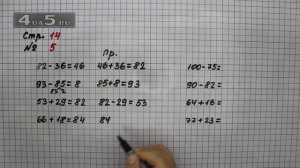 4DA5.RU
Стр. 14
№ 5
Пр.
82-36=46 46+36=82 100-75=
93-85=8 85+8=93 90-82=
85 2
53+29=82 82-29=53 64+16=
66+18=84 84 77+23=